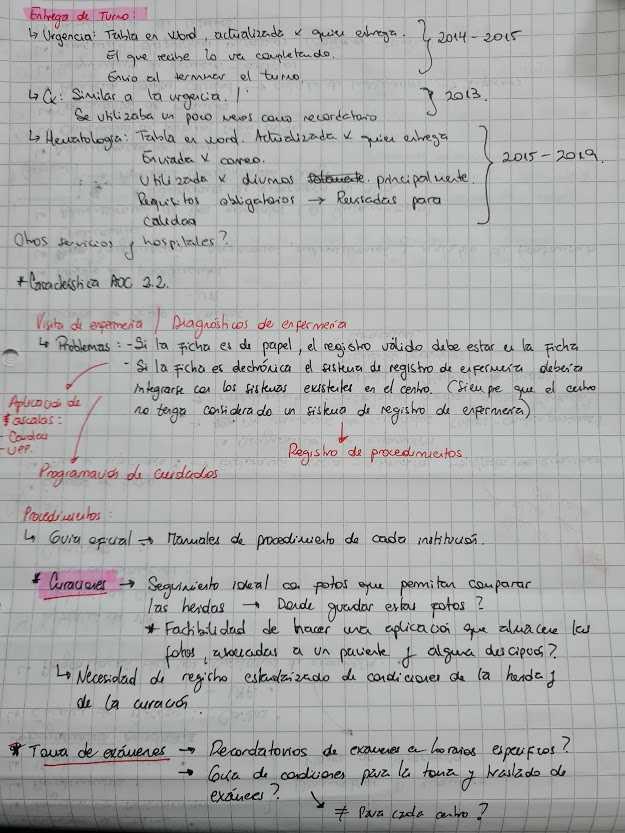 Entrega de Turno:
↳ Urgencia: Tabla en Word, actualizada x quien entrega.
El que recibe lo va completando.
Envio al terminar el turno.
} 2014 - 2015
↳ Cx: Similar a la urgencia.
Se utilizaba un poco menos como recordatorio
} 2013.
↳ Hematología: Tabla en word. Actualizada x quien entrega
Enviada x correo.
Utilizada x diurnos solamente principalmente.
Requisitos obligatorios → Revisadas para
calidad
} 2015 - 2019.
Otros servicios y hospitales?
* Característica AOC 2.2.
Visita de enfermería / Diagnósticos de enfermería
↳ Problemas: - Si la ficha es de papel, el registro válido debe estar en la ficha
- Si la ficha es electrónica el sistema de registro de enfermería debería
integrarse con los sistemas existentes en el centro. (Siempre que el centro
no tenga considerado un sistema de registro de enfermería)
Aplicación de
escalas:
- Caídas
- UPP.
Registro de procedimientos
Programación de cuidados
Procedimientos:
↳ Guía oficial → Manuales de procedimiento de cada institución.
* Curaciones → Seguimiento ideal con fotos que permitan comparar
las heridas → Donde guardar estas fotos?
* Factibilidad de hacer una aplicación que almacene las
fotos, asociadas a un paciente y alguna descipció?
↳ Necesidad de registro estandarizado de condiciones de la herida y
de la curación
* Toma de exámenes → Recordatorios de exámenes en horarios específicos?
→ Guía de condiciones para la toma y traslado de
exámenes?
↘ ≠ Para cada centro?